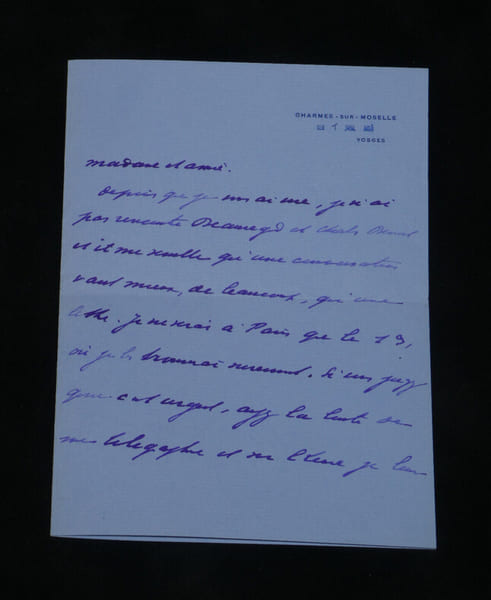 CHARMES-SUR-MOSELLE
VOSGES
madame et amie.
depuis que je vous ai vue, je n'ai
pas rencontré Beauregard et Charles
et il me semble qu'une conversation
vaut mieux, de beaucoup, qu'une
lettre. Je ne serai à Paris que le 13,
où je les trouverai surement. Si vous jugez
que c'est urgent, ayez la bonté de
me télégraphier et sur l'heure je leur